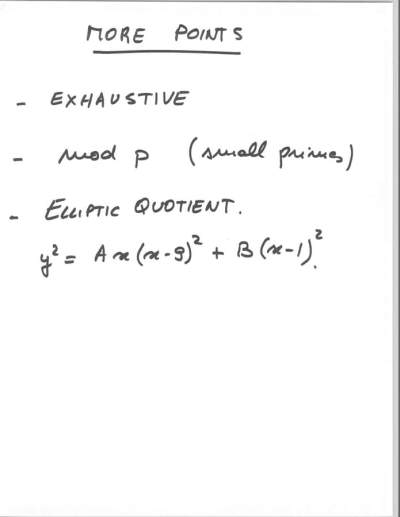 MORE POINTS
- EXHAUSTIVE
- mod p (small primes)
- ELLIPTIC QUOTIENT.
y² = A x (x-9)² + B (x-1)².